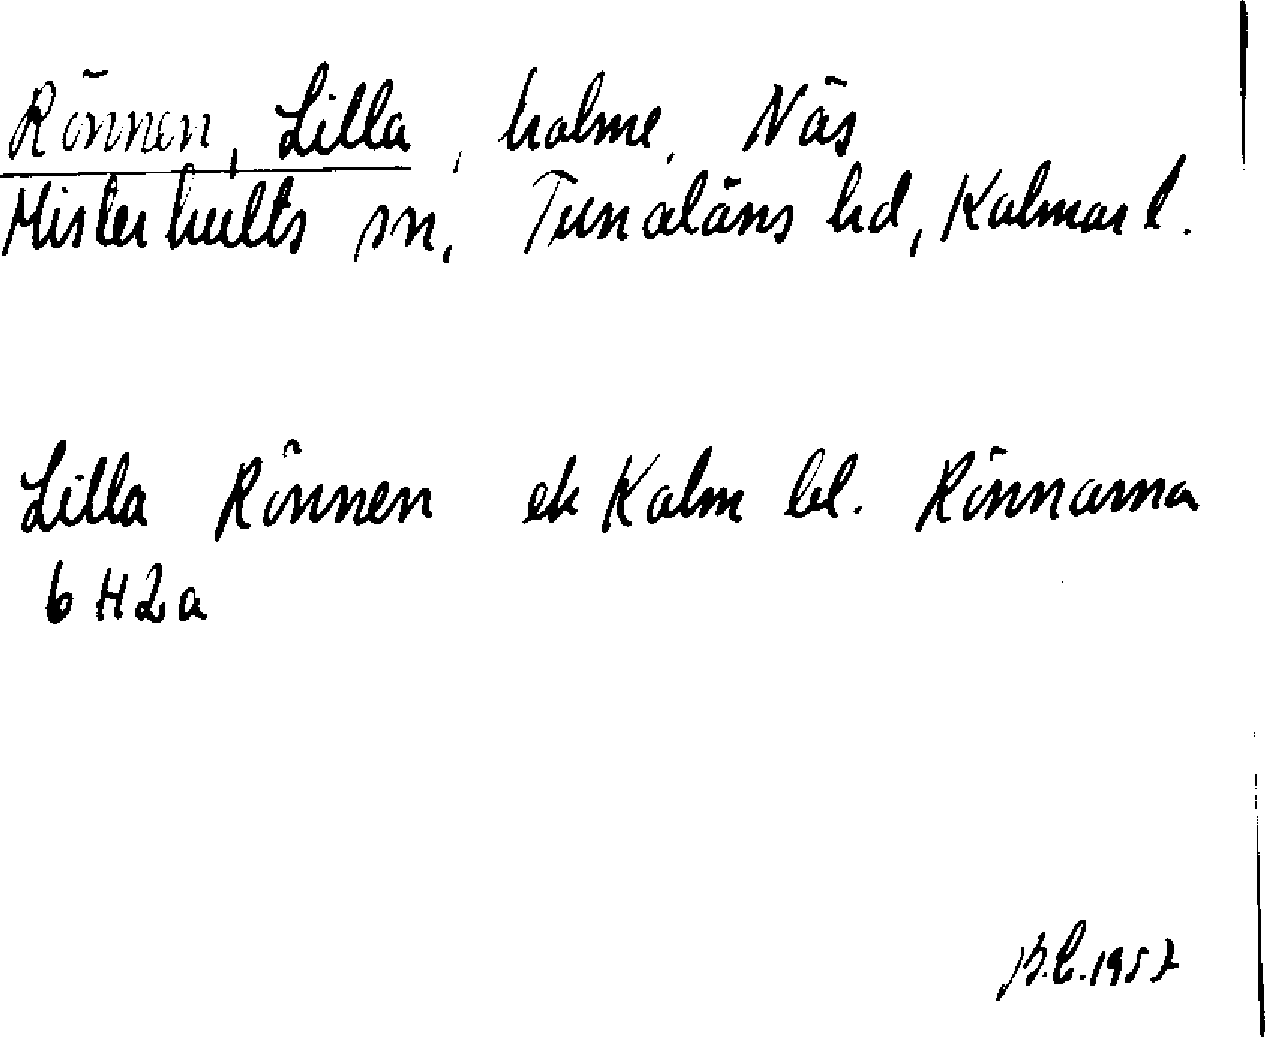 Rönnen, Lilla, holme, Näs
Misterhults sn, Tunaläns hd, Kalmar l.
Lilla Rönnen ek Kalm bl. Rönnarna
6 H2a
B.E. 1957